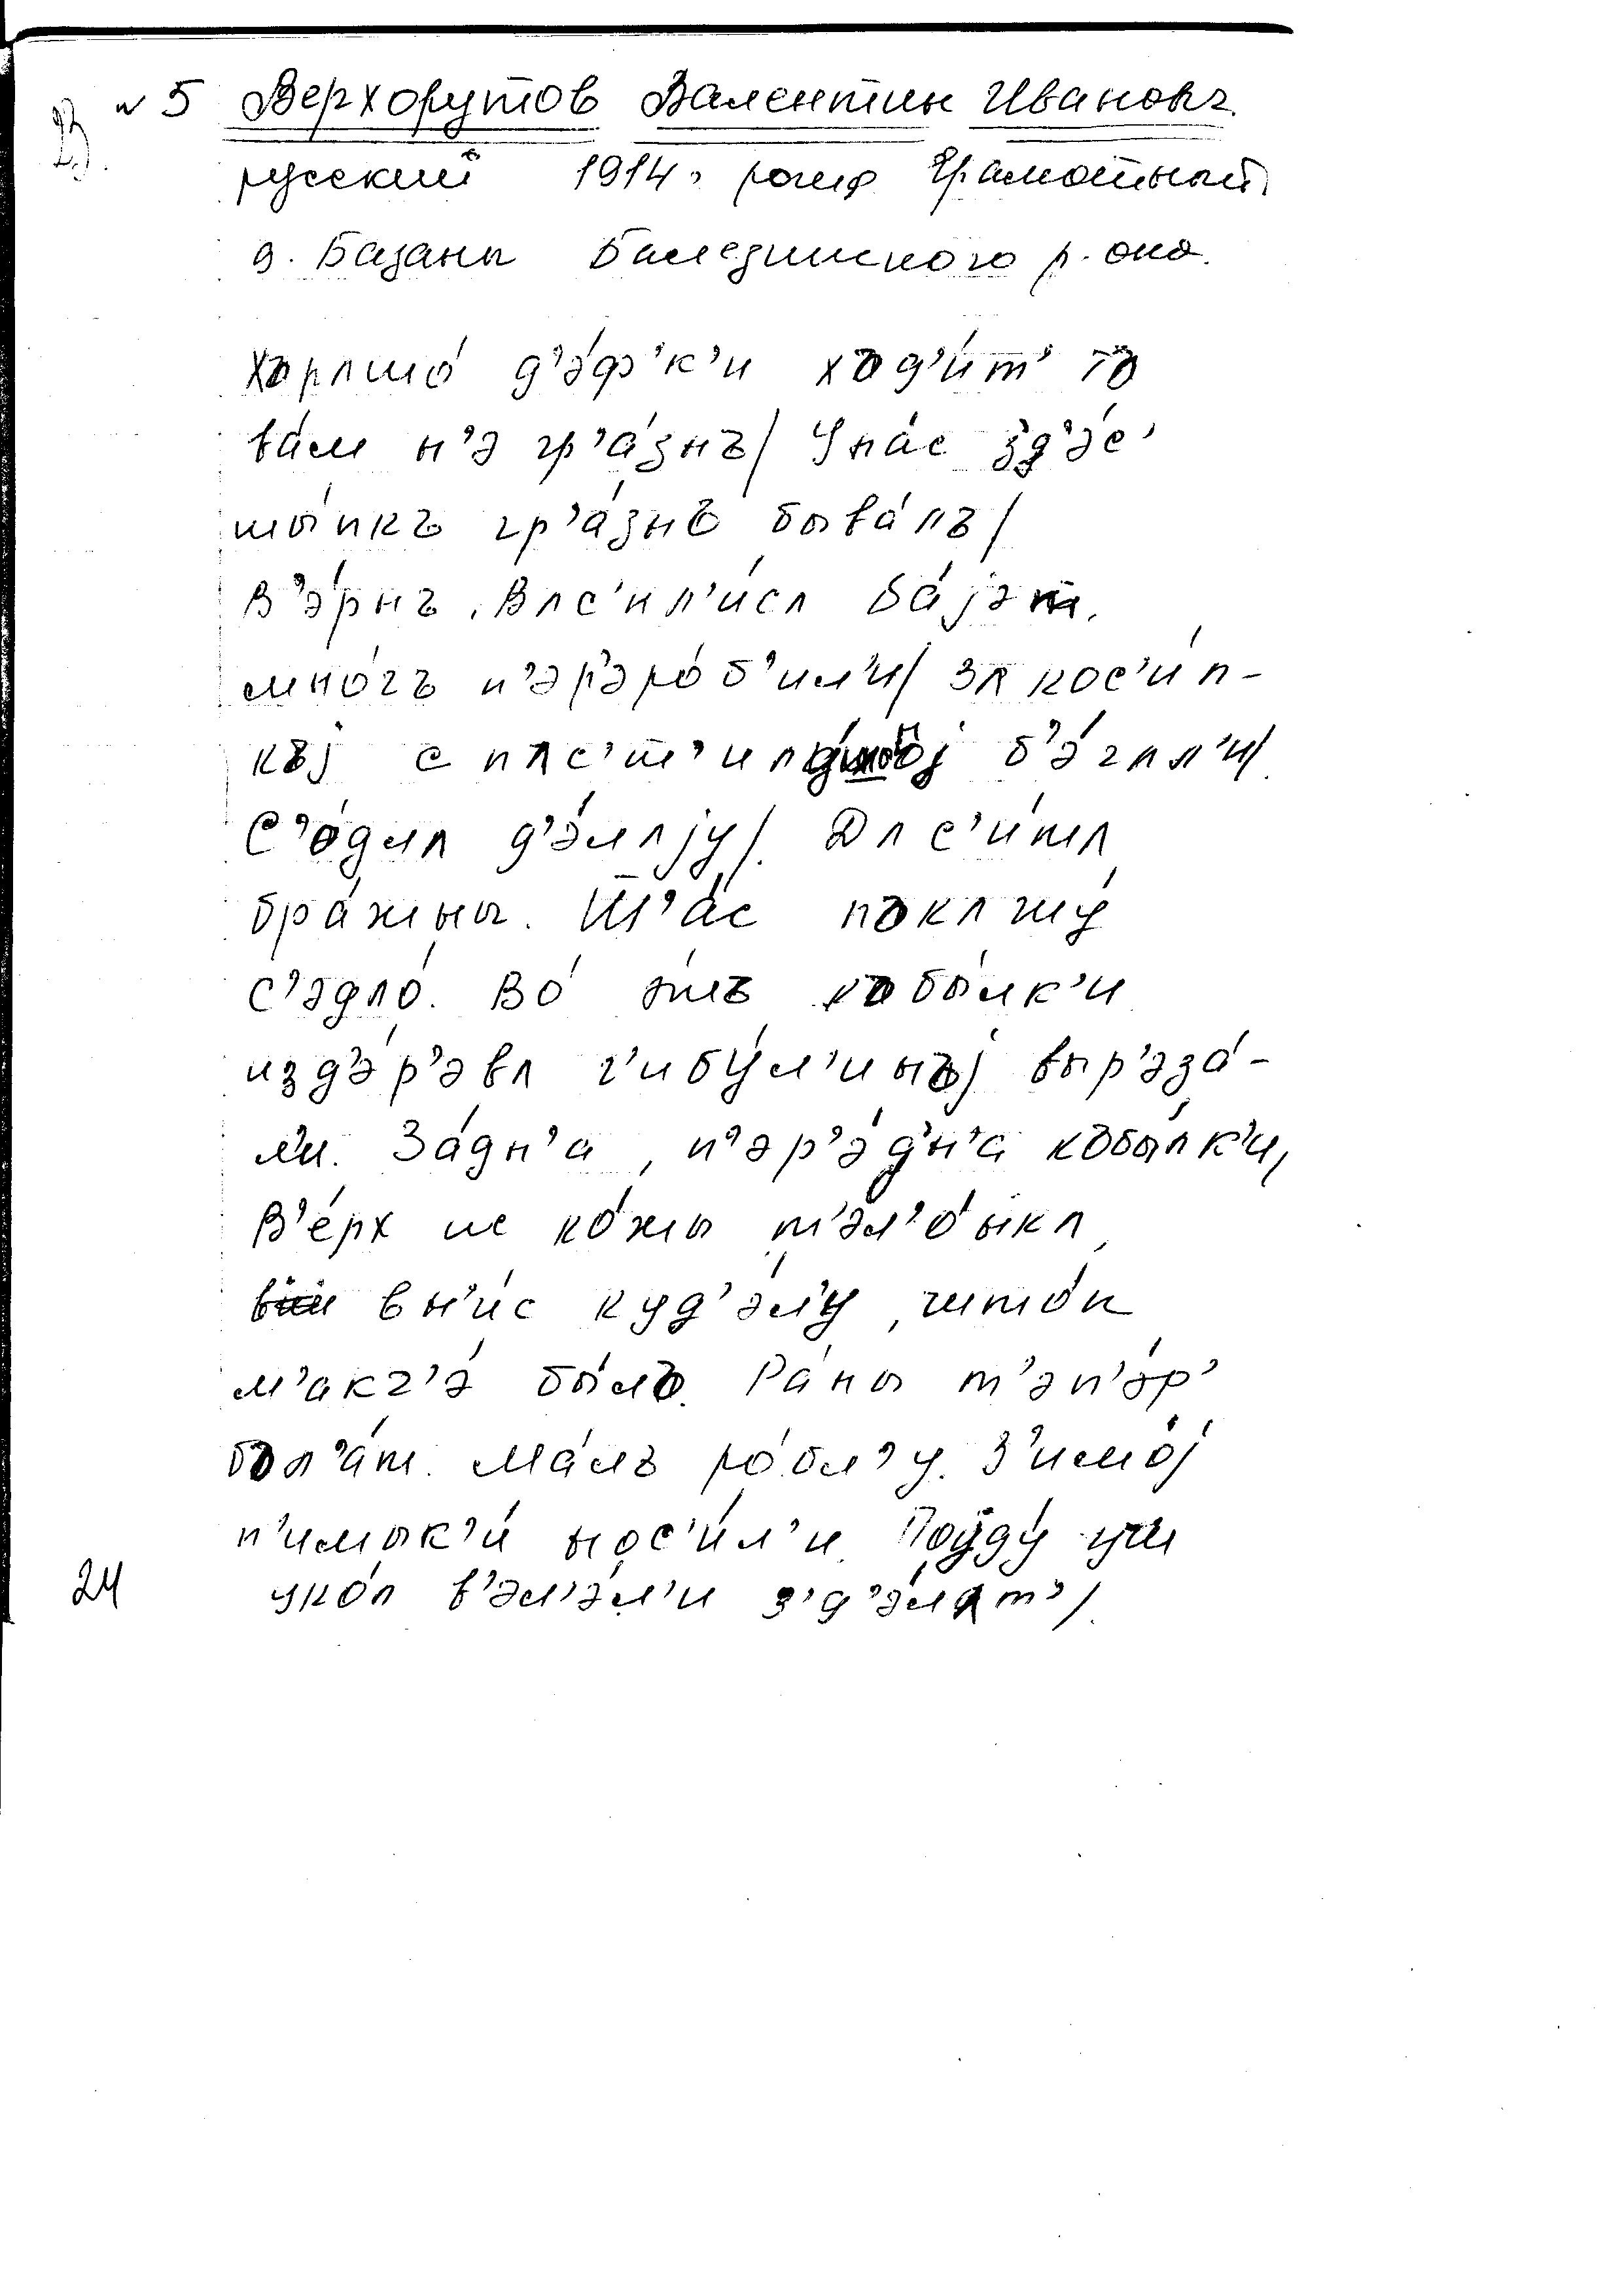 23.
№ 5 Верхорутов Валентин Иванович
русский 1914 г. рожд. Грамотный
д. Базаны Балезинского р-она.
хърʌшо́ д'э́ф'к'и хъд'и́т' то
ва́м н'э гр'а́знъ/ У на́с зд'э́с'
шы́пкъ гр'а́знъ быва́лъ/
В'э́рнъ, Вʌс'ил'исʌ ба́јэт.
мно́гъ п'эр'эро́б'ил'и/ Зʌ кос'и́л-
къј с б'э́гʌл'и/
С'о́длʌ д'э́лʌју/. Дʌс'и́тʌ
бра́жны. Ш'а́с пъкʌжу́
с'эдло́. Во́ э́тъ кабы́лк'и
из д'э́р'эвʌ г'ибу́л'инъј выр'эза́-
ли. За́дн'а, п'эр'э́дн'а къбы́лк'и,
В'е́рх ис ко́жы т'эл'о́нкʌ,
вн'и́с куд'э́л'у, штоп
м'акг'э́ бы́лъ. Ра́ны т'эп'э́р'
бол'а́т. Ма́лъ ро́бл'у. З'имо́ј
п'имык'и́ нос'и́л'и. Поўду́ уш
уко́л в'эл'э́л'и з'д'э́лʌт'/.
24